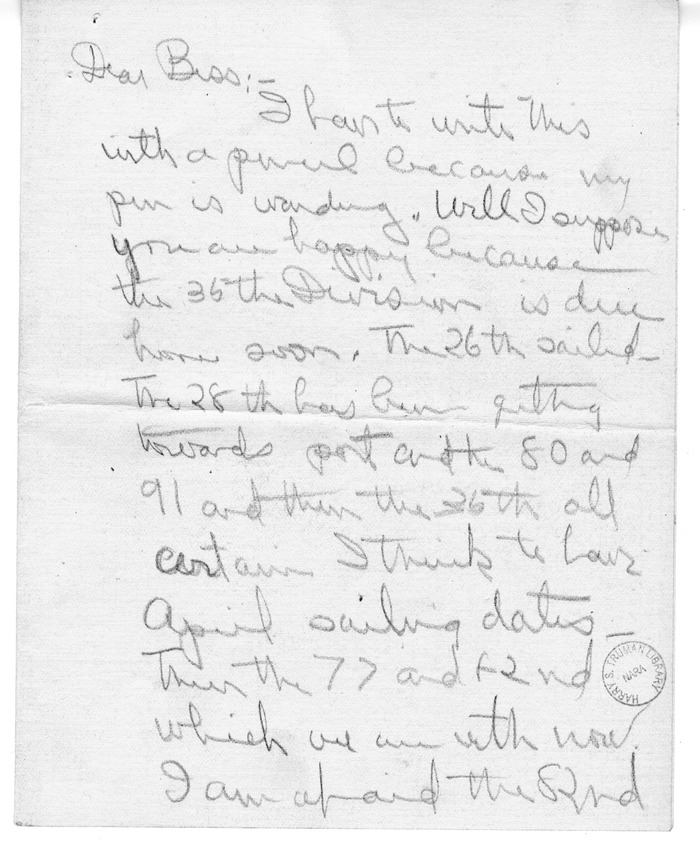 Dear Bess:-
I have to write this
with a pencil because my
pen is wanding. Well I suppose
you are happy because
the 35th Division is due
home soon. The 26th sailed-
The 28th has been getting
towards port and the 80 and
91 and then the 36th all
certain I think to have
April sailing dates-
Then the 77 and 82nd
which we are with now.
I am afraid the 82nd
HARRY S. TRUMAN LIBRARY
NARA